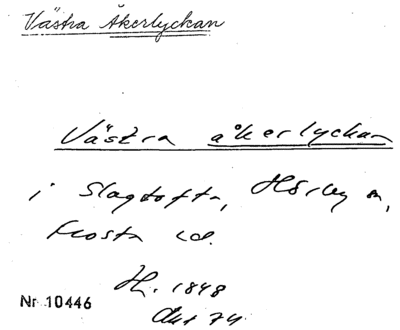 Västra Åkerlyckan
Västra åkerlyckan
i Slagtofta, Hörby sn,
Frosta hd.
H. 1848
Akt 74
Nr 10446